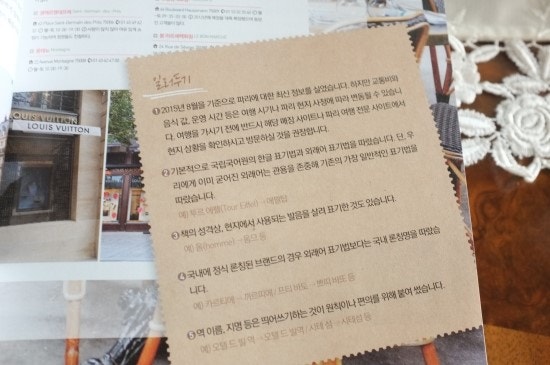 Saint-Germain-des-Prés
LOUIS VUITTON
LOUIS VUITTON
일러두기
❶ 2015년 8월을 기준으로 파리에 대한 최신 정보를 실었습니다. 하지만 교통비와
음식 값, 운영 시간 등은 여행 시기나 파리 현지 사정에 따라 변동될 수 있습니
다. 여행을 가시기 전에 반드시 해당 매장 사이트나 파리 여행 전문 사이트에서
현지 상황을 확인하시고 방문하실 것을 권장합니다.
❷ 기본적으로 국립국어원의 한글 표기법과 외래어 표기법을 따랐습니다. 단, 우
리에게 이미 굳어진 외래어는 관용을 존중해 기존의 가장 일반적인 표기법을
따랐습니다.
예) 투르 에펠(Tour Eiffel) →에펠탑
❸ 책의 성격상, 현지에서 사용되는 발음을 살려 표기한 것도 있습니다.
예) 옴(homme) →옴므 등
❹ 국내에 정식 론칭된 브랜드의 경우 외래어 표기법보다는 국내 론칭명을 따랐습
니다.
예) 카르티에→
❺ 역 이름, 지명 등은 띄어쓰기하는 것이 원칙이나 편의를 위해 붙여 썼습니다.
예) 오텔 드 빌 역→오텔드빌역 / 시테 섬→시테섬 등